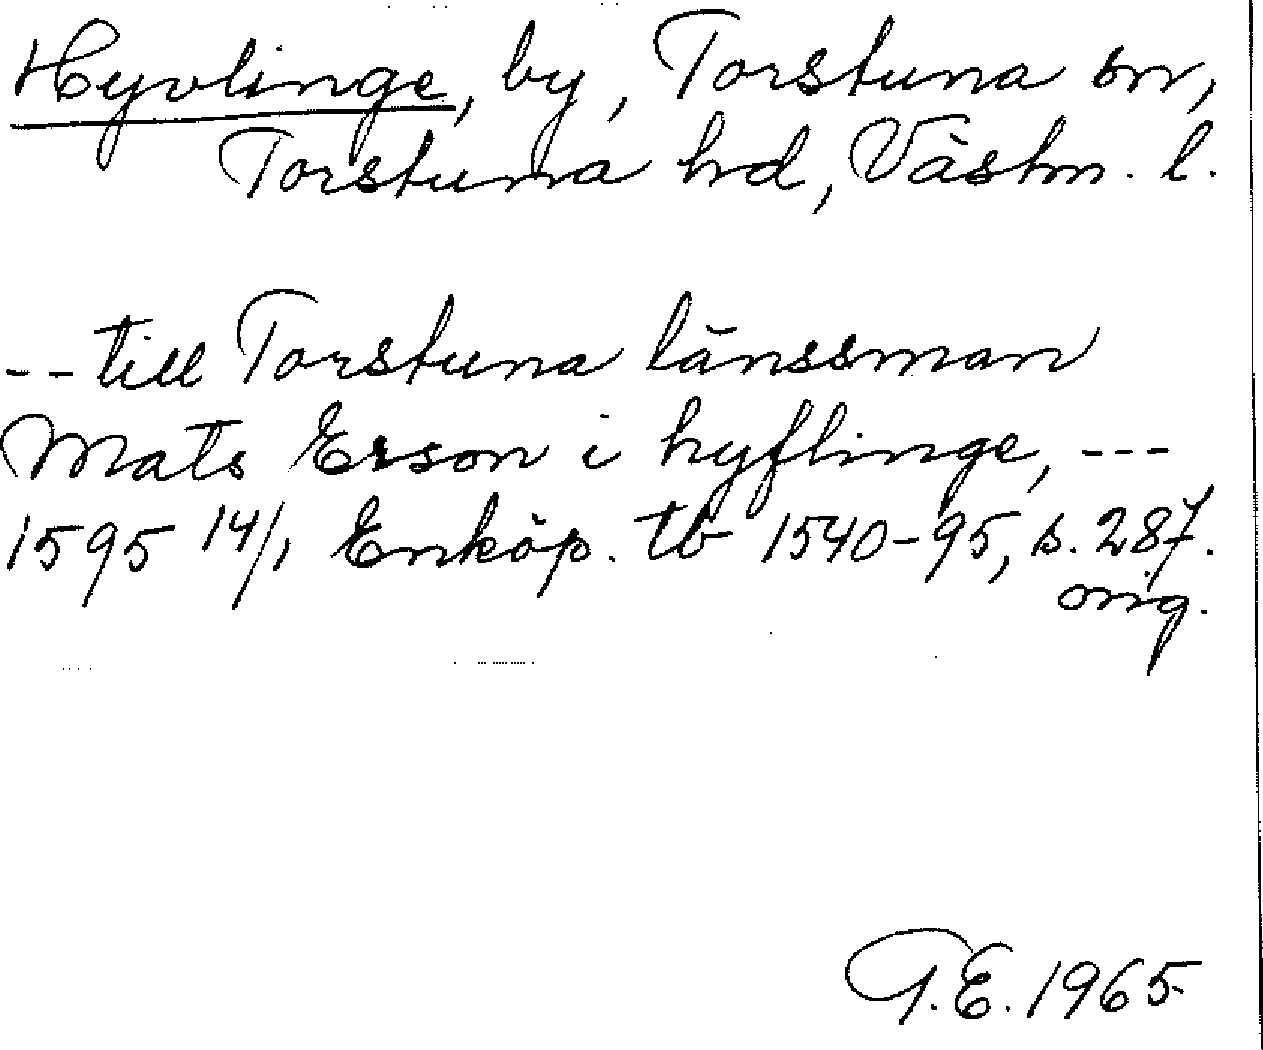 Hyvlinge, by, Torstuna sn,
Torstuna hd, Västm. l.
-- till Torstuna länssman
Mats Erson i hyflinge, ---
1595 14/1 Enköp. tb 1540-95, s. 287.
orig.
G.E. 1965